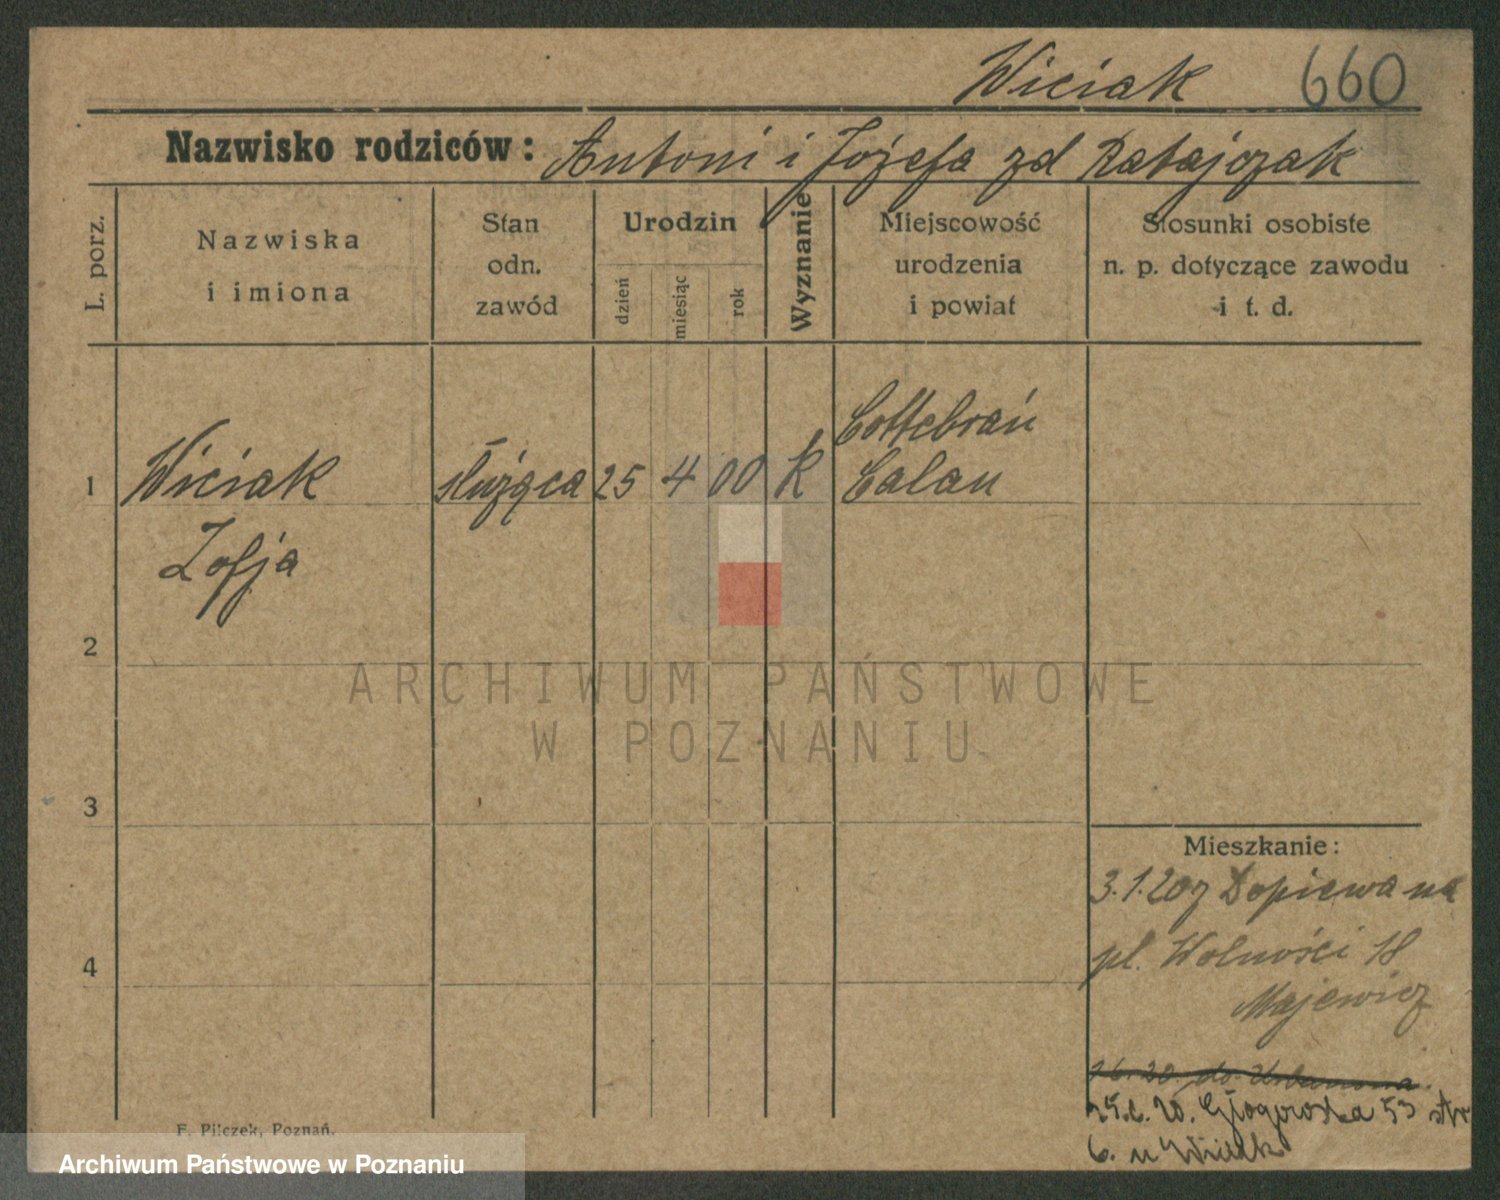 Wiciak 660
Nazwisko rodziców: Antoni i Józefa zd Ratajczak
L. porz.
Nazwiska i imiona
Stan odn. zawód
Urodzin
dzień
miesiąc
rok
Wyznanie
Miejscowość urodzenia i powiat
Stosunki osobiste n. p. dotyczące zawodu i t. d.
Cottebrań
1 Wiciak służąca 25 4 00 K Calau
Zofja
2
ARCHIWUM PAŃSTWOWE
W POZNANIU
3
Mieszkanie:
3.1.20 z Dopiewa na
pl. Wolności 18
4
Majewicz
do Urbanowa
25.6.20. Głogowska 53
6. u Wiciak
F. Pilczek, Poznań.
Archiwum Państwowe w Poznaniu